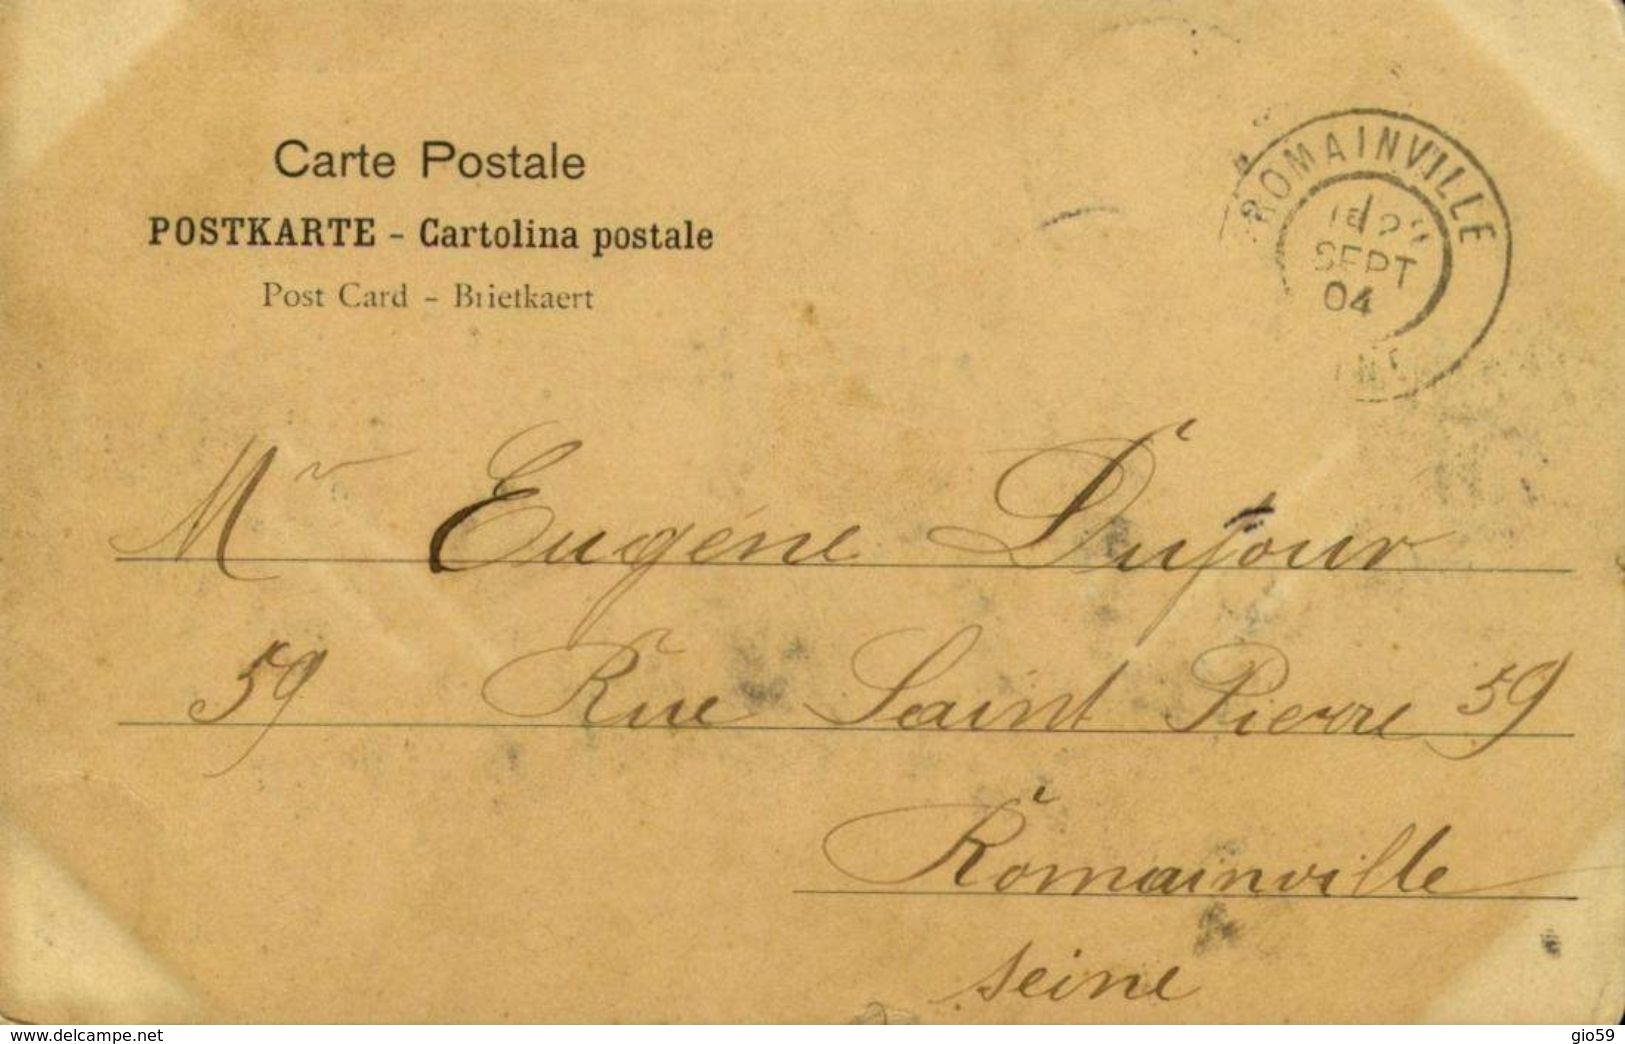 Carte Postale
POSTKARTE - Cartolina postale
Post Card - Brietkaert
ROMAINVILLE
SEPT
04
Mr Eugéne Dufour
59 Rue Saint Pierre 59
Romainville
seine
www.delcampe.net
gio59